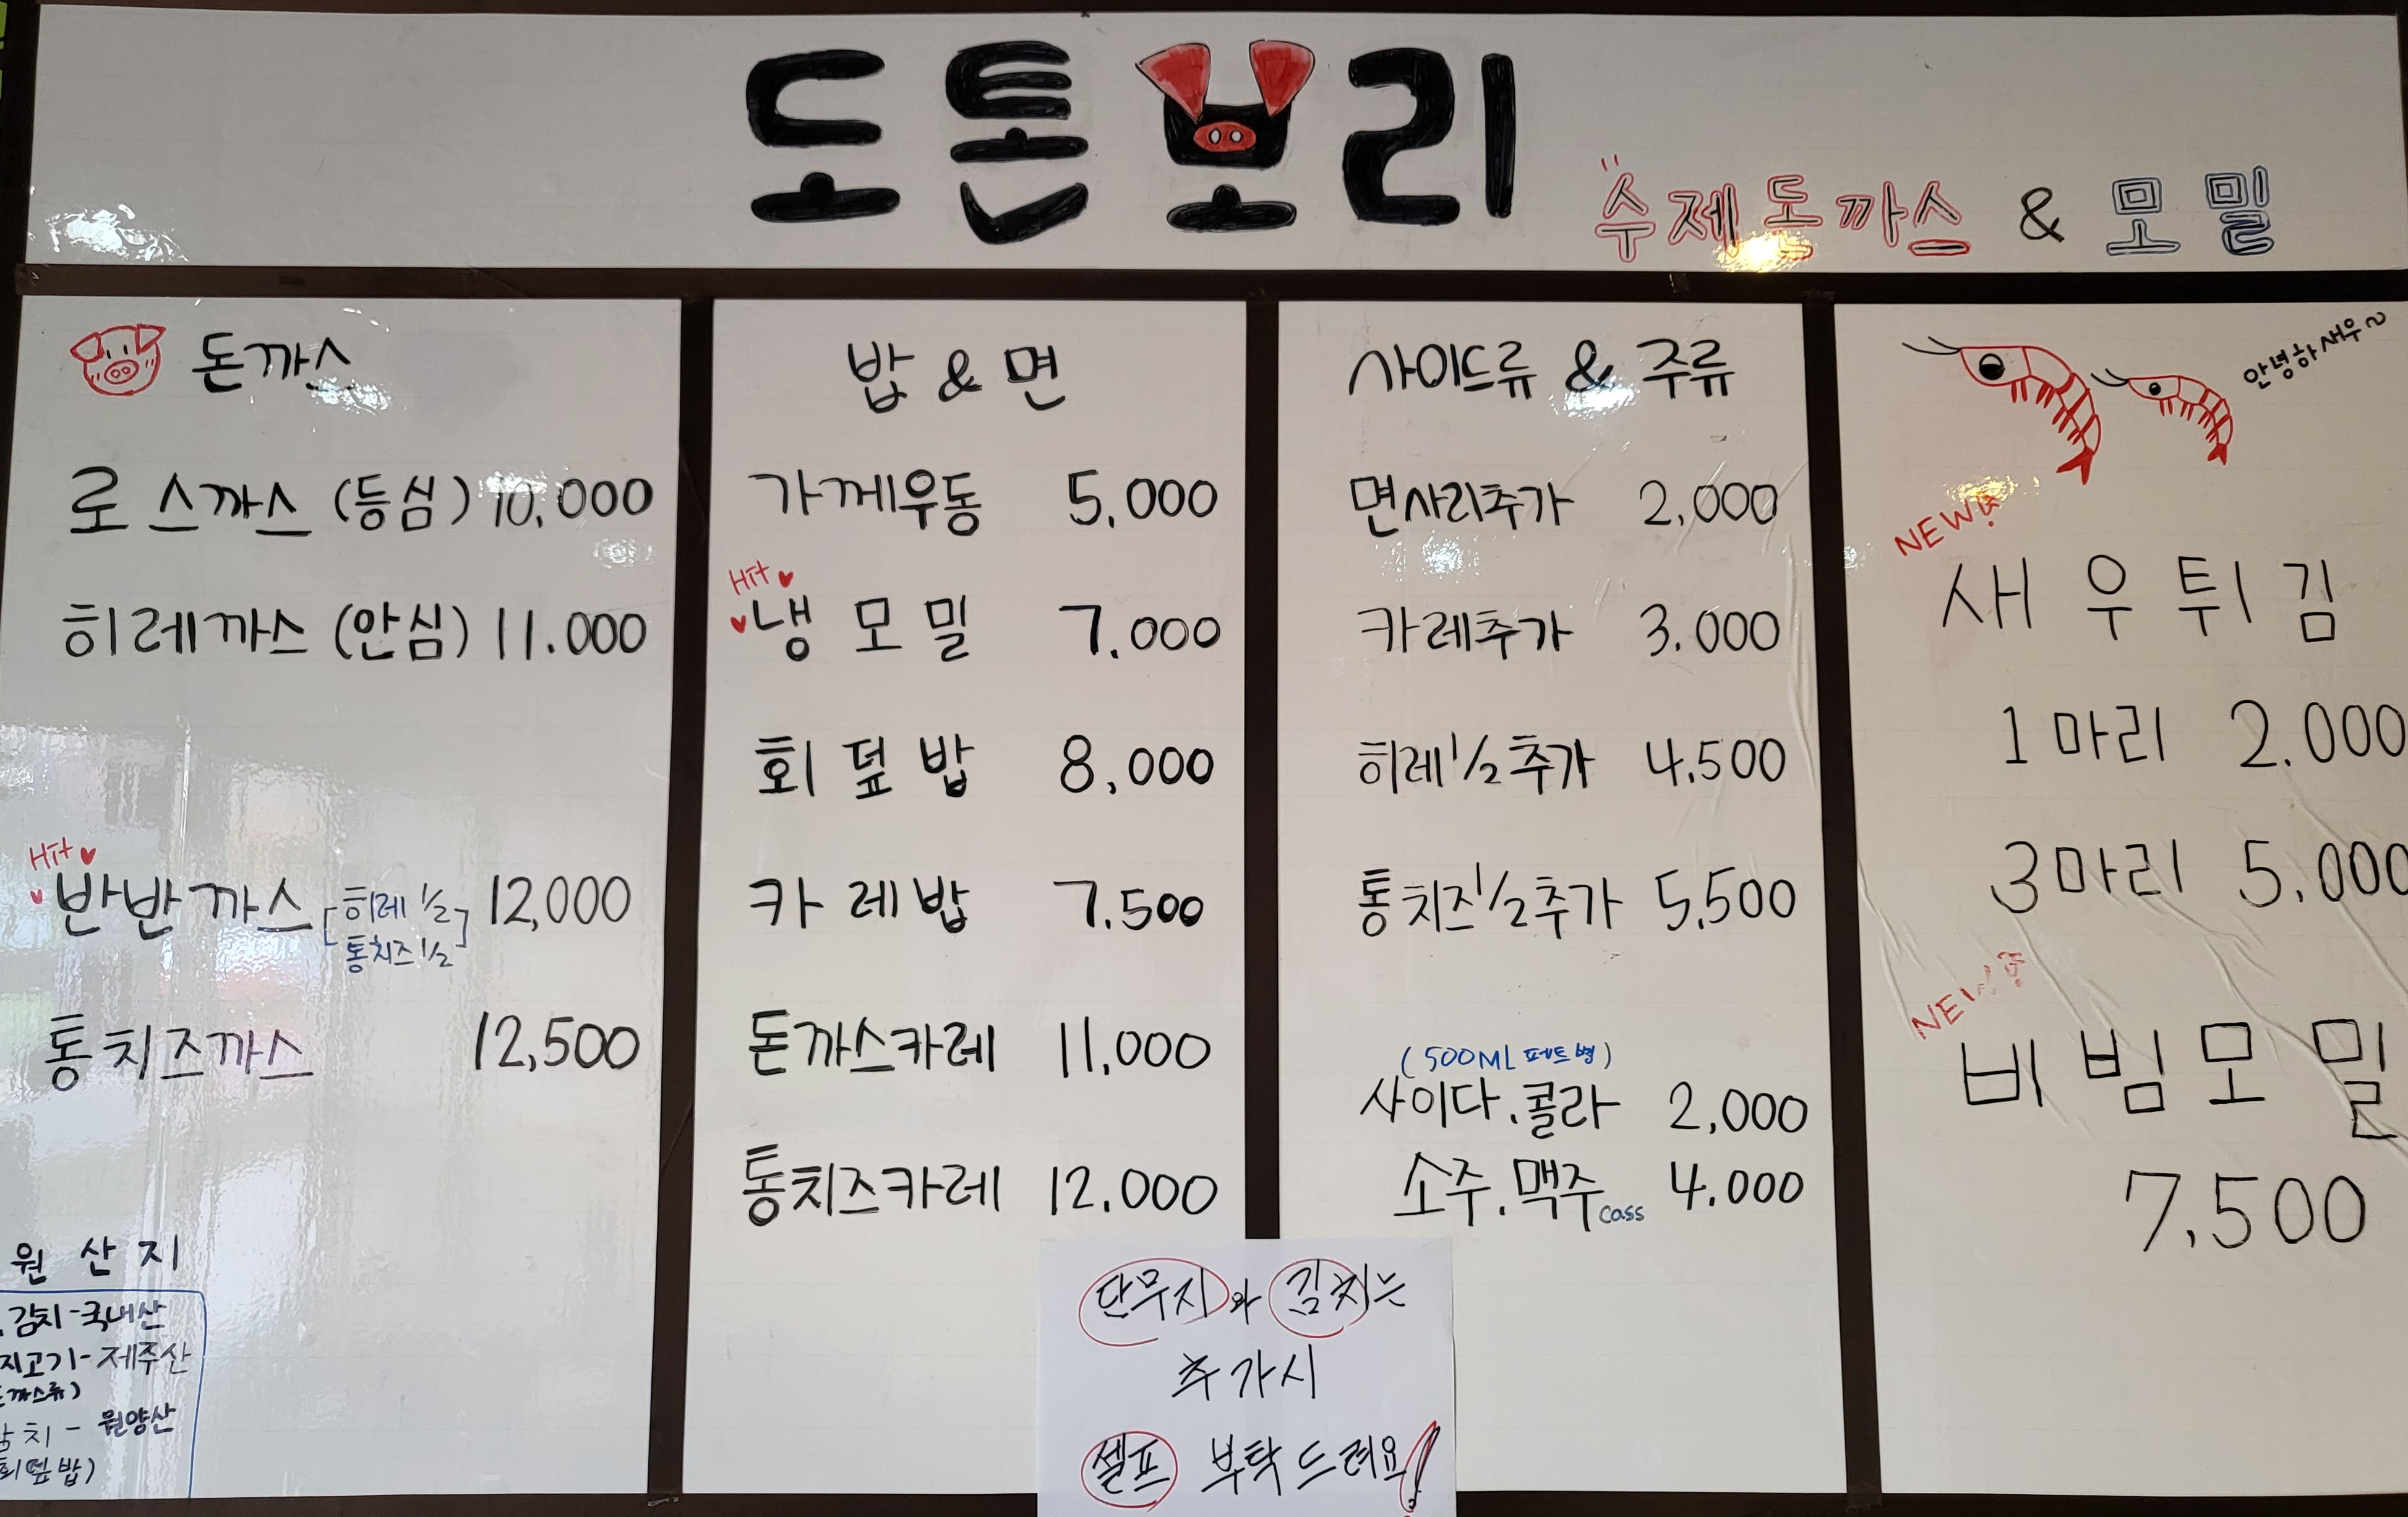 도톤보리
수제돈까스 & 모밀
돈까스
로스까스 (등심) 10,000
히레까스 (안심) 11.000
Hit
반반까스 [히레 1/2 통치즈 1/2] 12,000
통치즈까스 12,500
원산지
김치-국내산
지고기-제주산
까스류)
치 - 원양산
회덮밥)
밥 & 면
가께우동 5,000
Hit
냉모밀 7.000
회덮밥 8,000
카레밥 7.500
돈까스카레 11,000
통치즈카레 12.000
사이드류 & 주류
면사리추가 2,000
카레추가 3.000
히레1/2추가 4,500
통치즈1/2추가 5,500
(500ML 페트병)
사이다.콜라 2,000
소주.맥주 cass 4.000
단무지와 김치는
추가시
셀프 부탁드려요!
안녕하새우~
NEW
새우튀김
1마리 2.000
3마리 5.000
NEW
비빔모밀
7,500